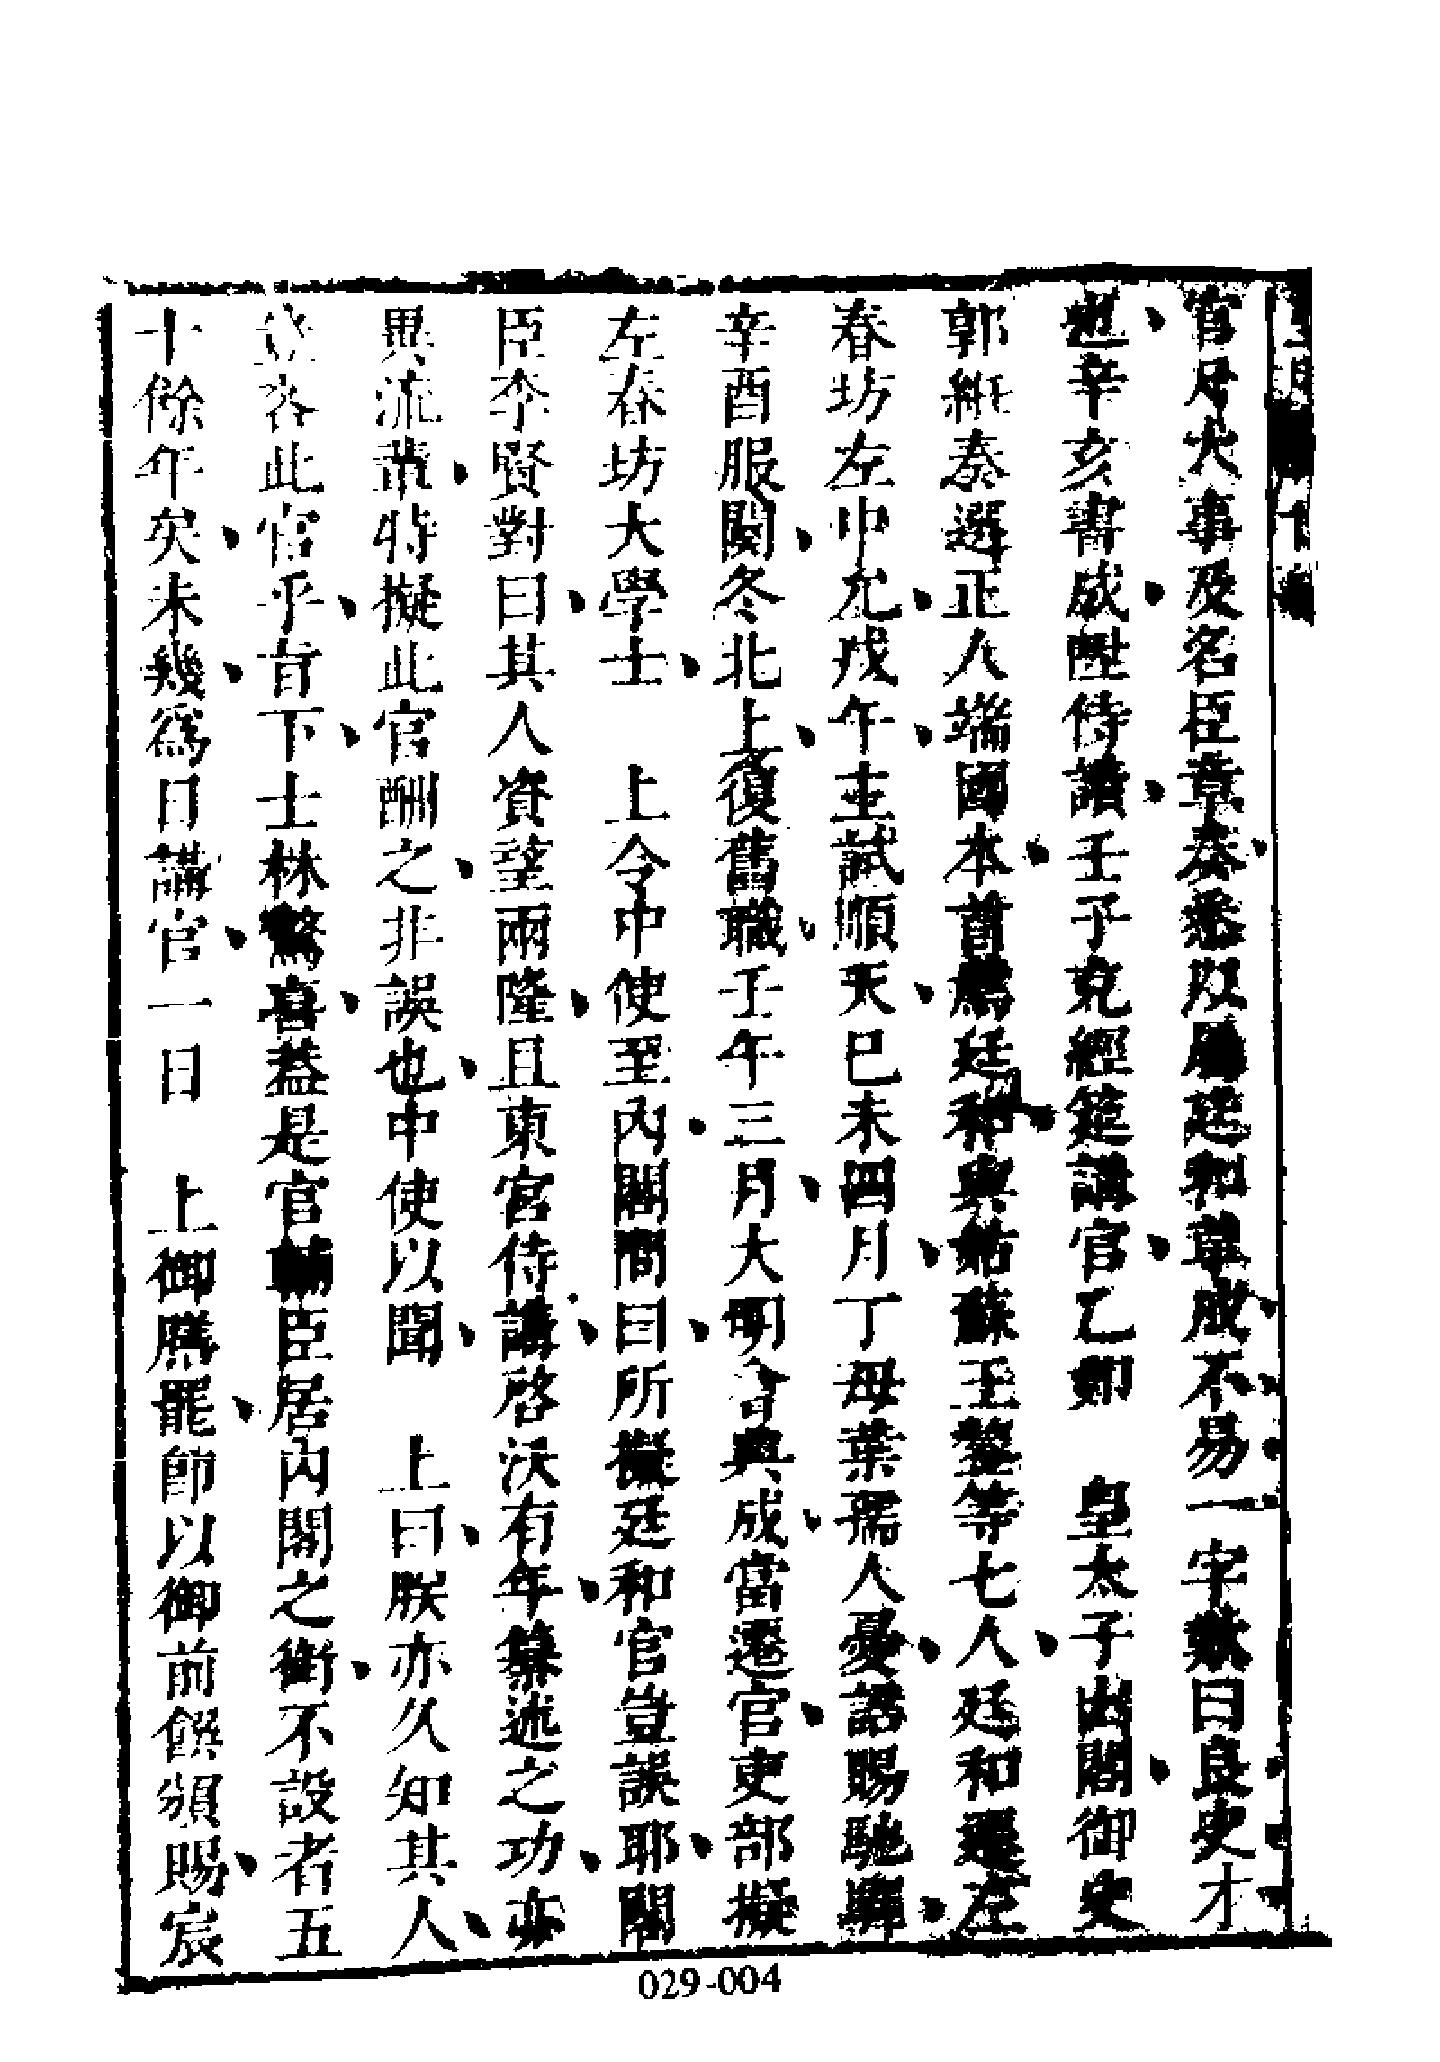 官凡大事及名臣章奏悉以屬廷和草成不易一字歎曰良史才
也辛亥書成陞侍讀壬子充經筵講官乙卯　皇太子出閣御史
郭絍奏選正人端國本首薦廷和與姑蘇王鏊等七人廷和遷左
春坊左中允戊午主試順天巳未四月丁母葉孺人憂詔賜馳驛
辛酉服闋冬北上復舊職壬午三月大明會典成當遷官吏部擬
左春坊大學士　上令中使至內閣問曰所擬廷和官豈誤耶閣
臣李賢對曰其人資望兩隆且東宮侍講啓沃有年纂述之功亦
異流輩特擬此官酬之非誤也中使以聞　上曰朕亦久知其人
豈吝此官乎旨下士林驚喜葢是官輔臣居內閣之銜不設者五
十餘年矣未幾爲日講官一日　上御膳罷節以御前饌頒賜宸
029-004